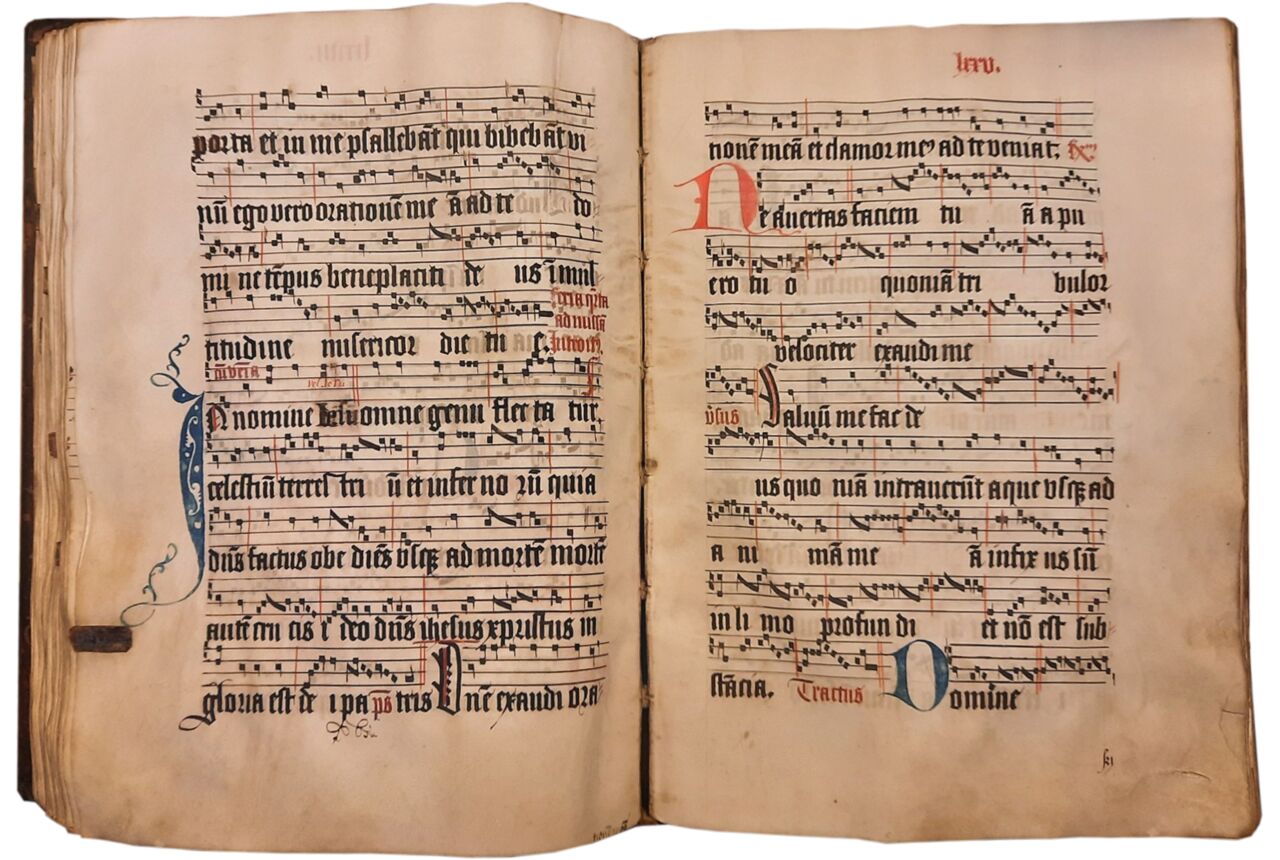 porta et in me psallebāt qui bibebāt vi
nū ego vero orationē me ā ad te do
mi ne tēpus beneplaciti de us ī mul
feria qrta
ad missā
titudine misericor die tu e. Introit9
In nomine ihesu omne genu flec ta tur
celestiū terres tri ū et infer no rū quia
dn̄s factus obe diēs vsq ad mortē mortē
autē cru cis ī deo dn̄s ihesus xpristus in
gloria est de i pa ps tris Dn̄e exaudi ora
lxxv.
tionē meā et clamor me9 ad te veniat;
Ne avertas faciem tu ā a pu
ero tu o quoniā tri bulor
velociter exaudi me
v̄sus Saluū me fac de
us quo niā intraverūt aque vsq ad
a ni mā me ā infix us sū
in li mo profun di et nō est sub
stācia. Tractus Domine